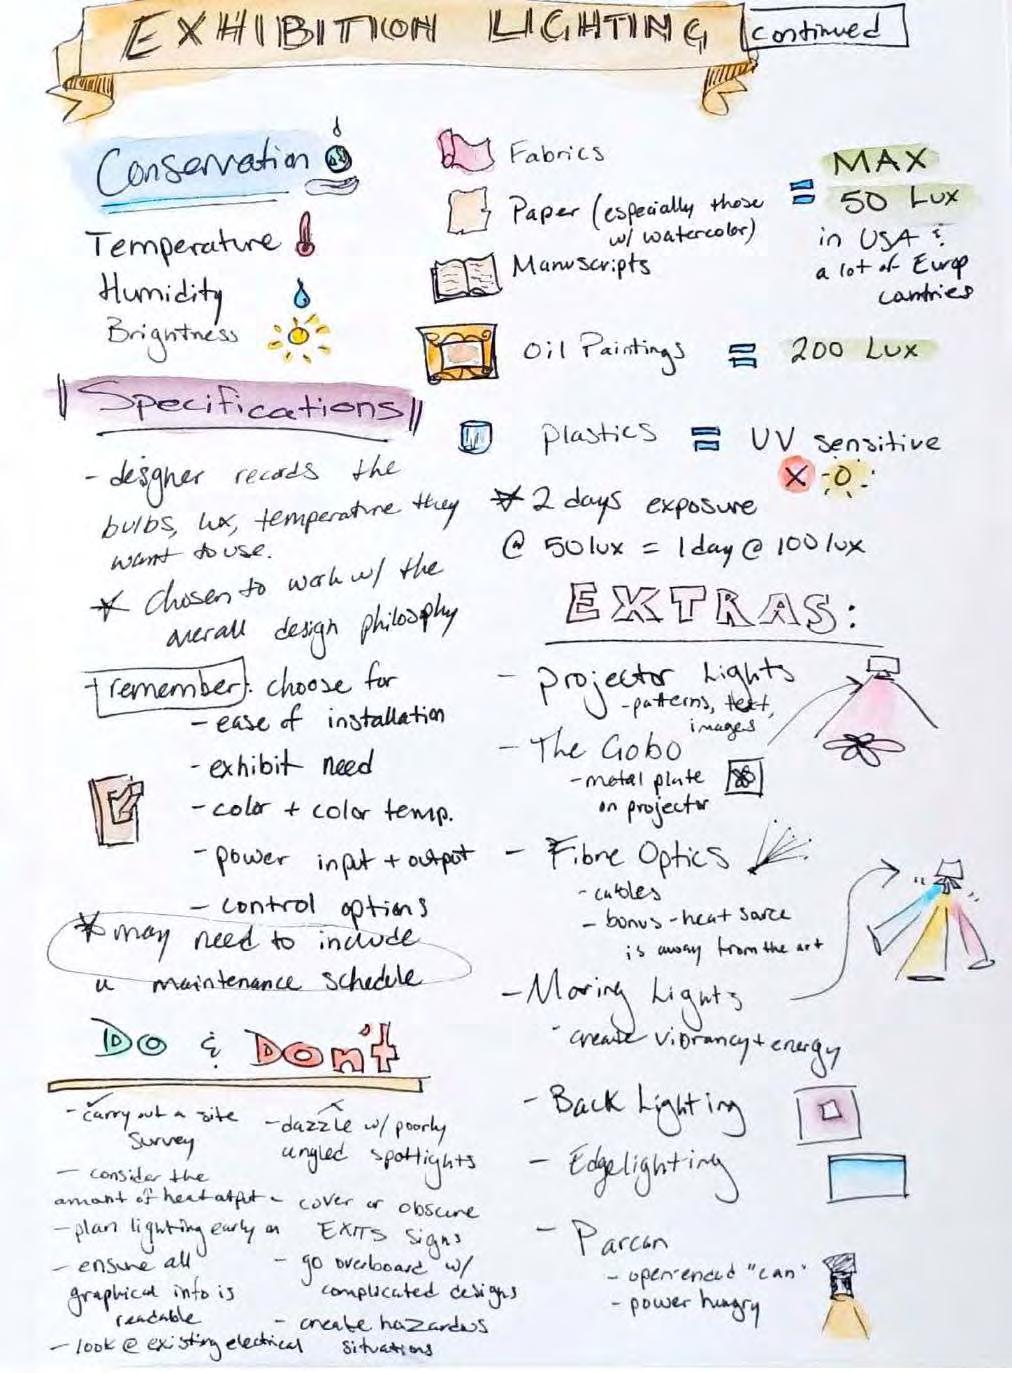 EXHIBITION LIGHTING
continued
Conservation
Temperature
Humidity
Brightness
Fabrics
Paper (especially those
w/ watercolor)
Manuscripts
=
MAX
50 Lux
in USA &
a lot of Europ
cantries
Oil Paintings = 200 Lux
plastics = UV sensitive
X
* 2 days exposure
@ 50 lux = 1 day @ 100 lux
Specifications
- designer records the
bulbs, lux, temperature they
want to use.
* Chosen to work w/ the
overall design philosophy
remember: choose for
- ease of installation
- exhibit need
- color + color temp.
- power input + output
- control options
* may need to include
a maintenance schedule
Do & Don't
- carry out a site
survey
- consider the
amount of heat output
- plan lighting early on
- ensure all
graphical info is
readable
- look @ existing electrical
- dazzle w/ poorly
angled spotlights
- cover or obscure
EXITS signs
- go overboard w/
complicated designs
- create hazardous
situations
EXTRAS:
- Projector Lights
- patterns, text,
images
- The Gobo
- metal plate
on projector
- Fibre Optics
- cables
- bonus - heat source
is away from the art
- Moving Lights
- create vibrancy + energy
- Back Lighting
- Edgelighting
- Parcan
- open-ened "can"
- power hungry